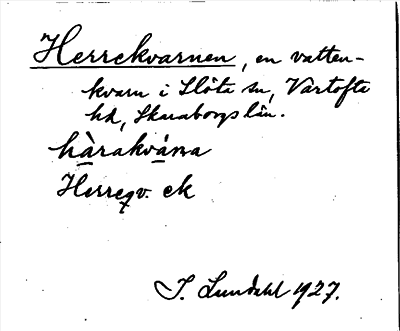 Herrekvarnen, en vatten-
kvarn i Slöta sn, Vartofta
hd, Skaraborgs län.
hàrakvána
Herreqv. ek
J. Lundahl 1927.